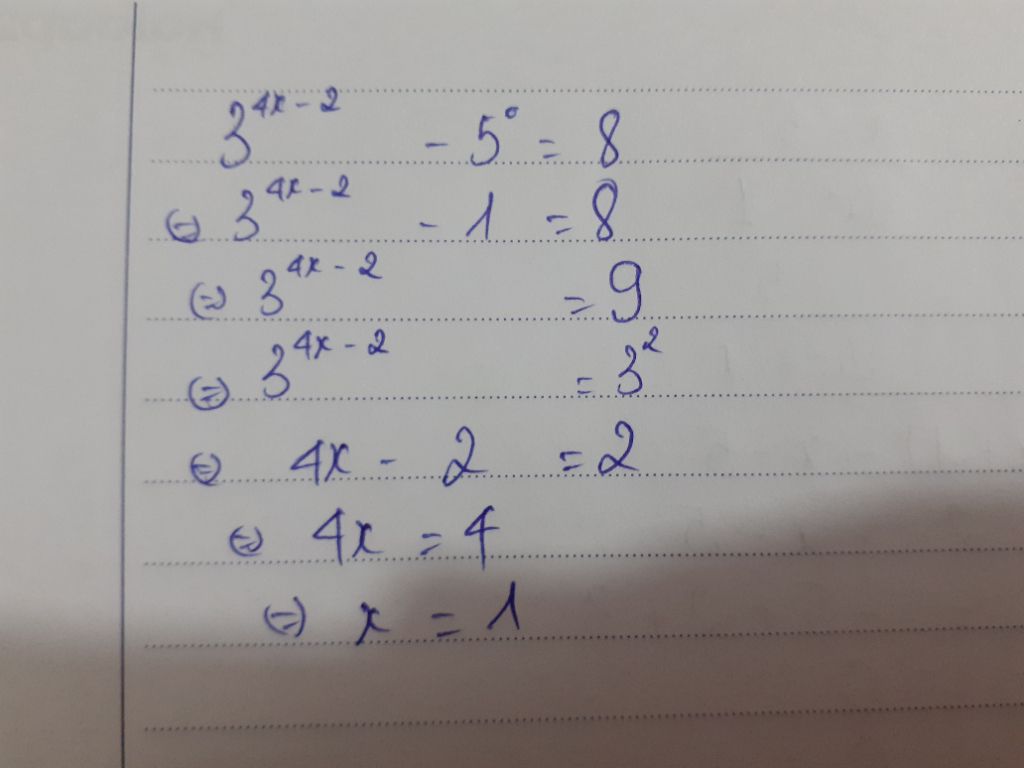 3^{4x-2} - 5^0 = 8
⇔ 3^{4x-2} - 1 = 8
⇔ 3^{4x-2} = 9
⇔ 3^{4x-2} = 3^2
⇔ 4x - 2 = 2
⇔ 4x = 4
⇔ x = 1